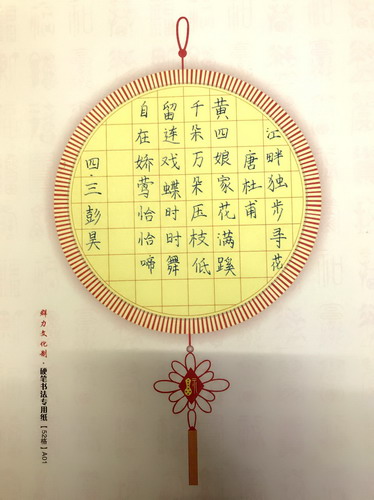 江畔独步寻花
唐杜甫
黄四娘家花满蹊
千朵万朵压枝低
留连戏蝶时时舞
自在娇莺恰恰啼
四.三彭昊
群力文化制·硬笔书法专用纸【52格】A01